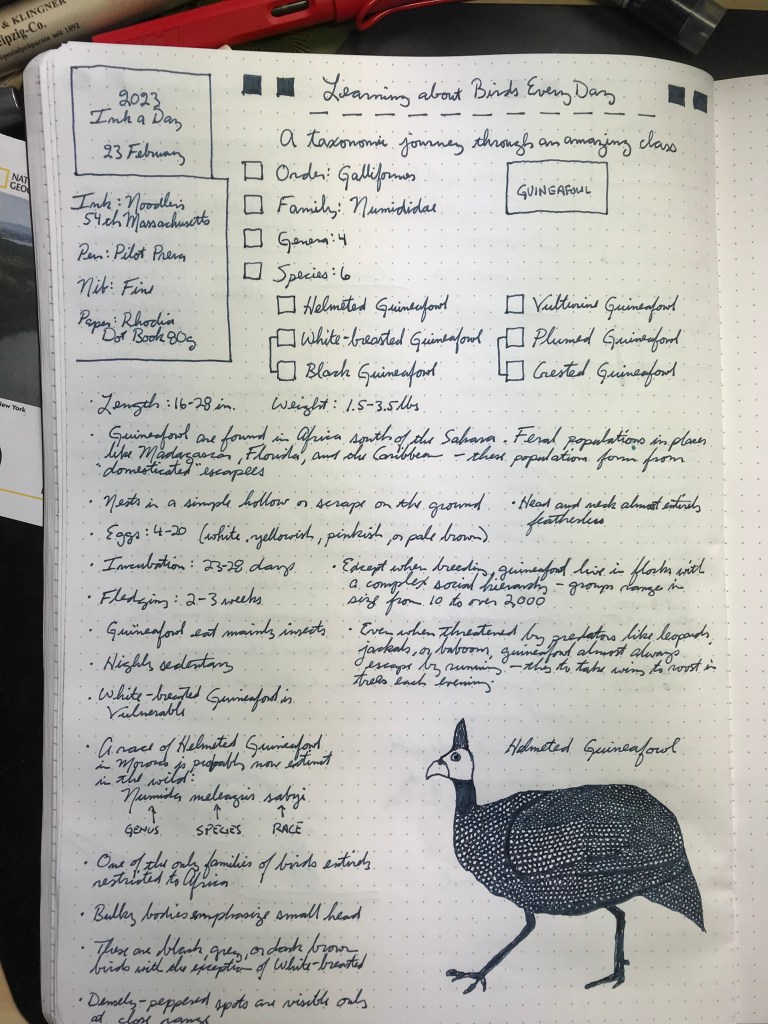 & KLINGNER
eipzig-Co.
Spezialpräparate seit 1892
NAT
GEOG
ew York
2023
Ink a Day
23 February
Ink: Noodler's
54th Massachusetts
Pen: Pilot Prera
Nib: Fine
Paper: Rhodia
Dot Book 80g
Learning about Birds Every Day
A taxonomic journey through an amazing class
Order: Galliformes
GUINGAFOUL
Family: Numididae
Genera: 4
Species: 6
Helmeted Guineafowl
Vulturine Guineafowl
White-breasted Guineafowl
Plumed Guineafowl
Black Guineafowl
Crested Guineafowl
· Length: 16-28 in. Weight: 1.5-3.5 lbs
· Guineafowl are found in Africa south of the Sahara. Feral populations in places
like Madagascar, Florida, and the Caribbean – these populations form from
"domesticated" escapees
· Nests in a simple hollow or scrape on the ground
· Head and neck almost entirely
featherless
· Eggs: 4-20 (white, yellowish, pinkish, or pale brown)
· Incubation: 23-28 days
· Except when breeding, guineafowl live in flocks with
a complex social hierarchy – groups range in
size from 10 to over 2,000
· Fledging: 2-3 weeks
· Guineafowl eat mainly insects
· Even when threatened by predators like leopards,
jackals, or baboons, guineafowl almost always
escape by running – this to take wing to roost in
trees each evening
· Highly sedentary
· White-breasted Guineafowl is
Vulnerable
· A race of Helmeted Guineafowl
in Morocco is probably now extinct
in the wild:
Numida meleagris sabyi
GENUS SPECIES RACE
Helmeted Guineafowl
· One of the only families of birds entirely
restricted to Africa
· Bulky bodies emphasize small head
· These are black, grey, or dark brown
birds with the exception of White-breasted
· Densely-peppered spots are visible only
at close range